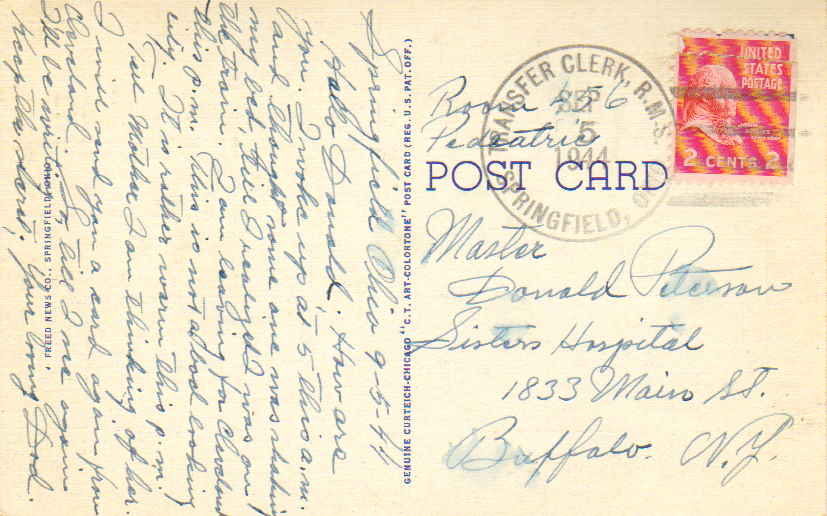 Springfield Ohio 9-5-44
Hello Donald; How are
you. I woke up at 5 this a.m.
and thought some one was shaking
my bed, till I realized I was on
the train. I am leaving for Cleveland
this p.m. This is not a bad looking
city. It is rather warm this p.m.
Tell Mother I am thinking of her.
I will send you a card again from
Cleveland. So, till I me again
I'll be
keep the Your loving Dad.
FREED NEWS CO., SPRINGFIELD, OHIO
GENUINE CURTEICH-CHICAGO "C.T. ART-COLORTONE" POST CARD (REG. U.S. PAT. OFF.)
Room 456
Pedeatric
POST CARD
TRANSFER CLERK, R.M.S.
SEP
5
1944
SPRINGFIELD, O.
UNITED
STATES
POSTAGE
2 CENTS 2
Master
Donald Peterson
Sisters Hospital
1833 Main St.
Buffalo. N.Y.